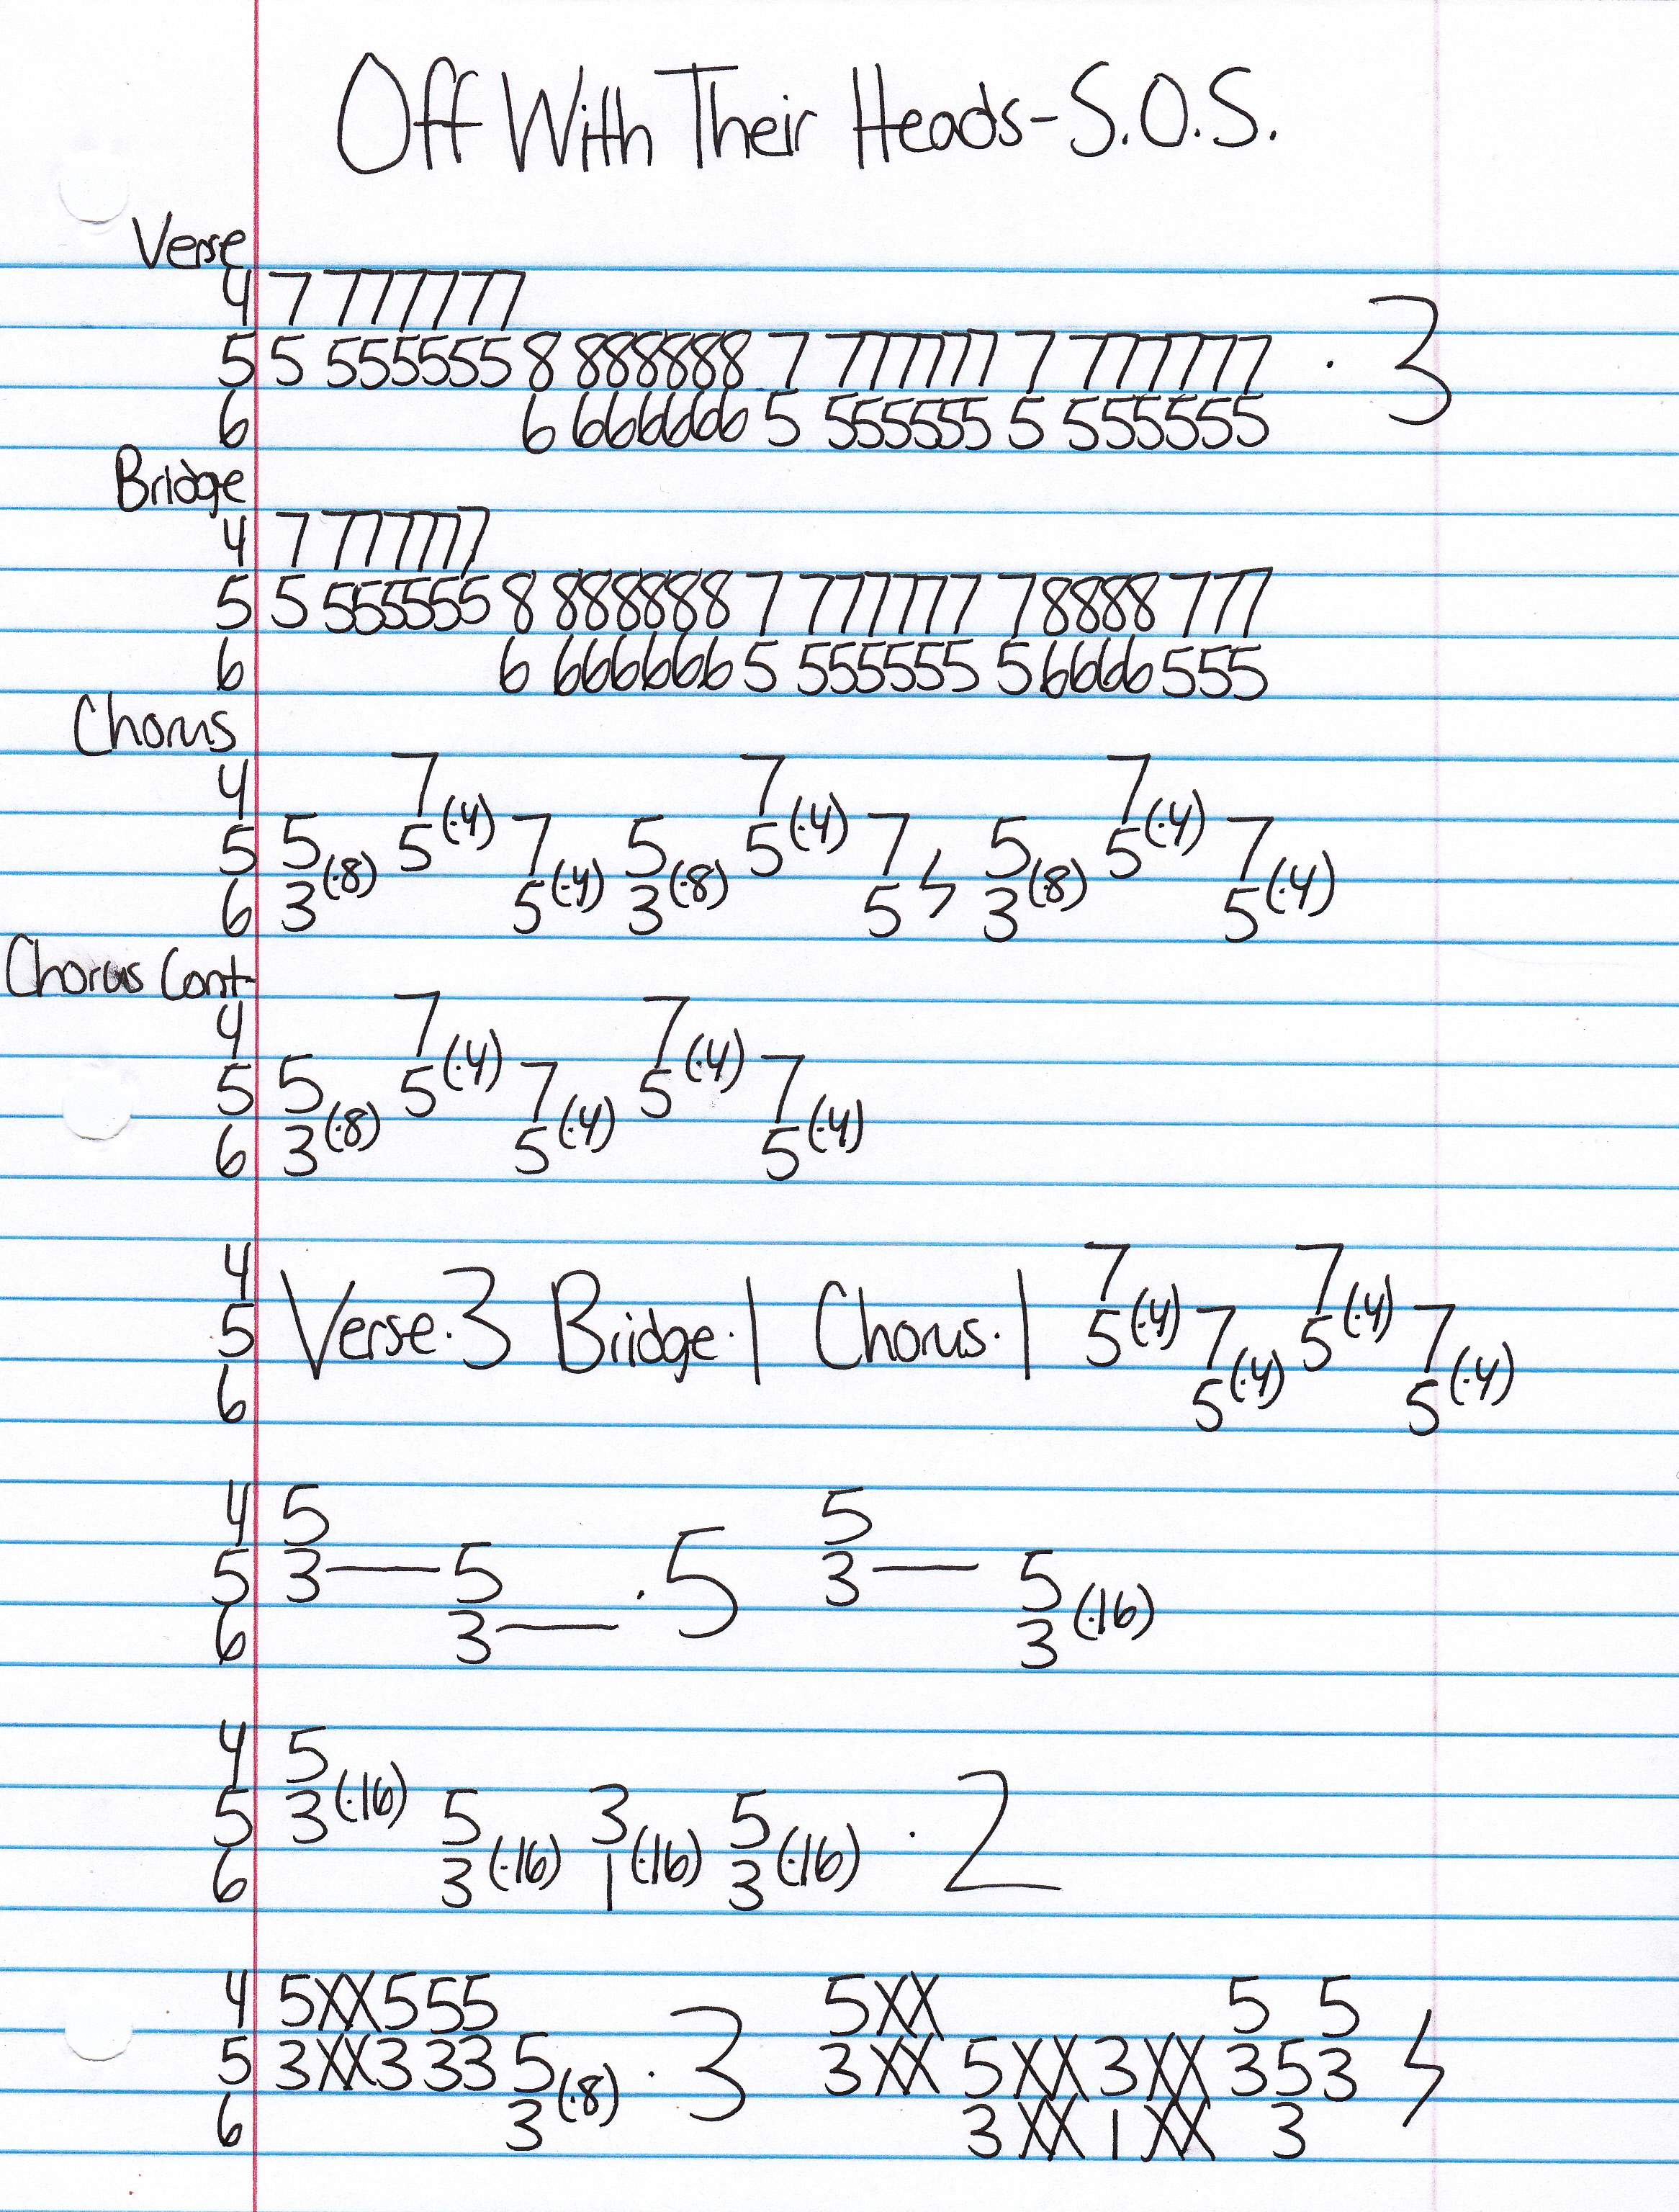 Off With Their Heads-S.O.S.
Verse
4 7 777777
5 5 555555 8 888888 7 777777 7 777777 · 3
6 6 666666 5 555555 5 555555
Bridge
4 7 777777
5 5 555555 8 888888 7 777777 7 8888 777
6 6 666666 5 555555 5 6666 555
Chorus
4 7 7 7
5 5 (·8) 5 (·4) 7 5 (·8) 5 (·4) 7 5 (·8) 5 (·4) 7
6 3 5 (·4) 3 5 3 5 (·4)
Chorus Cont
4 7 7
5 5 (·8) 5 (·4) 7 5 (·4) 7
6 3 5 (·4) 5 (·4)
4 7 7
5 Verse·3 Bridge·1 Chorus·1 5 (·4) 7 5 (·4) 7
6 5 (·4) 5 (·4)
4 5 5
5 3— 5 ·5 3— 5
6 3— 3 (·16)
4 5
5 3 (·16) 5 3 5 ·2
6 3 (·16) 1 (·16) 3 (·16)
4 5XX555 5XX 5 5
5 3XX333 5 (·8) ·3 3XX 5XX 3XX 3 5 3
6 3 3XX 1XX 3